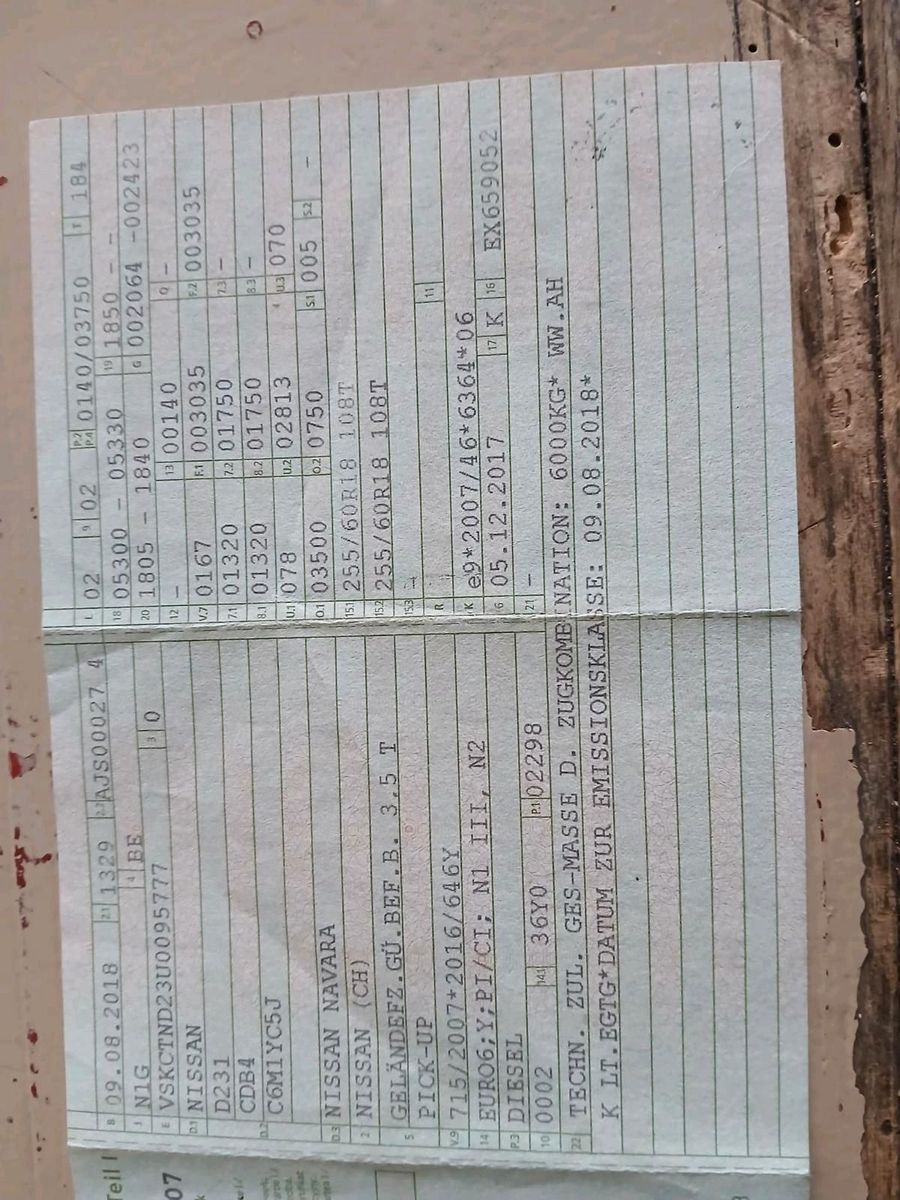 Teil I
07
B 09.08.2018 2.1 1329 2.2 AJS00027 4
J N1G 4 BE
E VSKCTND23U0095777 3 0
D.1 NISSAN
D231
CDB4
D.2 C6M1YC5J
D.3 NISSAN NAVARA
2 NISSAN (CH)
GELÄNDEFZ.GÜ.BEF.B. 3,5 T
5 PICK-UP
V.9 715/2007*2016/646Y
14 EURO6;Y;PI/CI; N1 III, N2
P.3 DIESEL
10 0002 14.1 36Y0 P.1 02298
L 02 9 02 P.2 P.4 0140/03750 T 184
18 05300 - 05330 19 1850 -
20 1805 - 1840 G 002064 -002423
12 - 13 00140 Q -
V.7 0167 F.1 003035 F.2 003035
7.1 01320 7.2 01750 7.3 -
8.1 01320 8.2 01750 8.3 -
U.1 078 U.2 02813 U.3 070
O.1 03500 O.2 0750 S.1 005 S.2 -
15.1 255/60R18 108T
15.2 255/60R18 108T
15.3 -
R 11
K e9*2007/46*6364*06
6 05.12.2017 17 K 16 EX659052
21 -
22 TECHN. ZUL. GES-MASSE D. ZUGKOMBINATION: 6000KG* WW.AH
K LT.EGTG*DATUM ZUR EMISSIONSKLASSE: 09.08.2018*